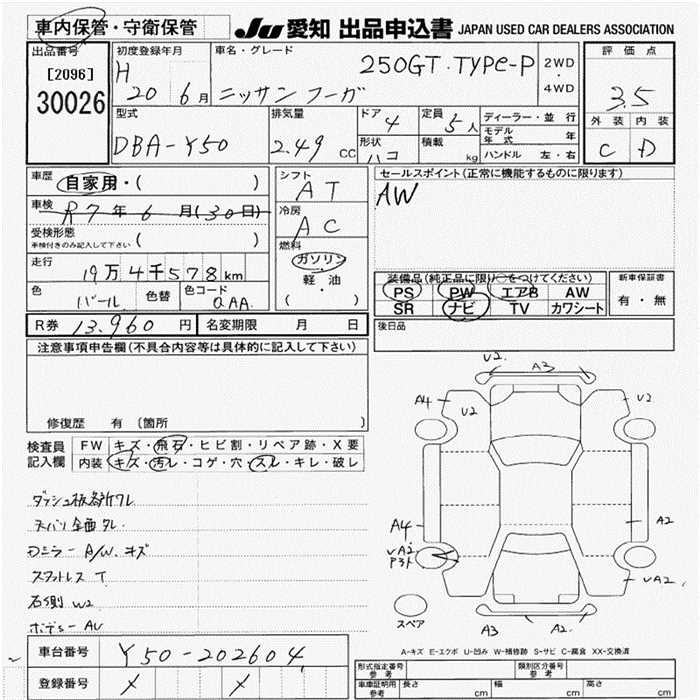 車内保管・守衛保管
JU 愛知 出品申込書 JAPAN USED CAR DEALERS ASSOCIATION
出品番号
[2096]
30026
初度登録年月
H 20 6月
車名・グレード
250GT.TYPe-P
ニッサン フーガ
2WD・4WD
評価点
3.5
外装 内装
C D
型式
DBA-Y50
排気量
2.49 CC
ドア 4
形状 ハコ
定員 5人
積載 kg
ディーラー・並行
モデル年式 年
ハンドル 左・右
車歴 自家用・( )
車検 R7年6月(30日)
受検形態
車検付きのみ記入して下さい ( )
走行
19万4千578km
色 パール 色替
色コード QAA.
シフト AT
冷房 AC
燃料
ガソリン
軽・油
( ・ )
セールスポイント(正常に機能するものに限ります)
AW
装備品(純正品に限り○をつけてください)
PS PW エアB AW
SR ナビ TV カワシート
新車保証書
有・無
R券 13,960円
名変期限 月 日
後日品
注意事項申告欄(不具合内容等は具体的に記入して下さい)
修復歴 有〔箇所 〕
検査員記入欄
FW キズ・飛石・ヒビ割・リペア跡・X要
内装 キズ・汚レ・コゲ・穴・スレ・キレ・破レ
天バリ全面タレ
ドミラー A/W.キズ
スタットレス T
右側 W2
ボデー AU
V2.
A3
A4
U2
U2
A4
VA2
A2
VA2
A3
A2.
スペア
A-キズ E-エクボ U-凹み W-補修跡 S-サビ C-腐食 XX-交換済
車台番号 Y50-202604
登録番号 X X
形式指定番号 参考
類別区分番号 参考
車庫証明用 参考
長さ cm
幅 cm
高さ cm